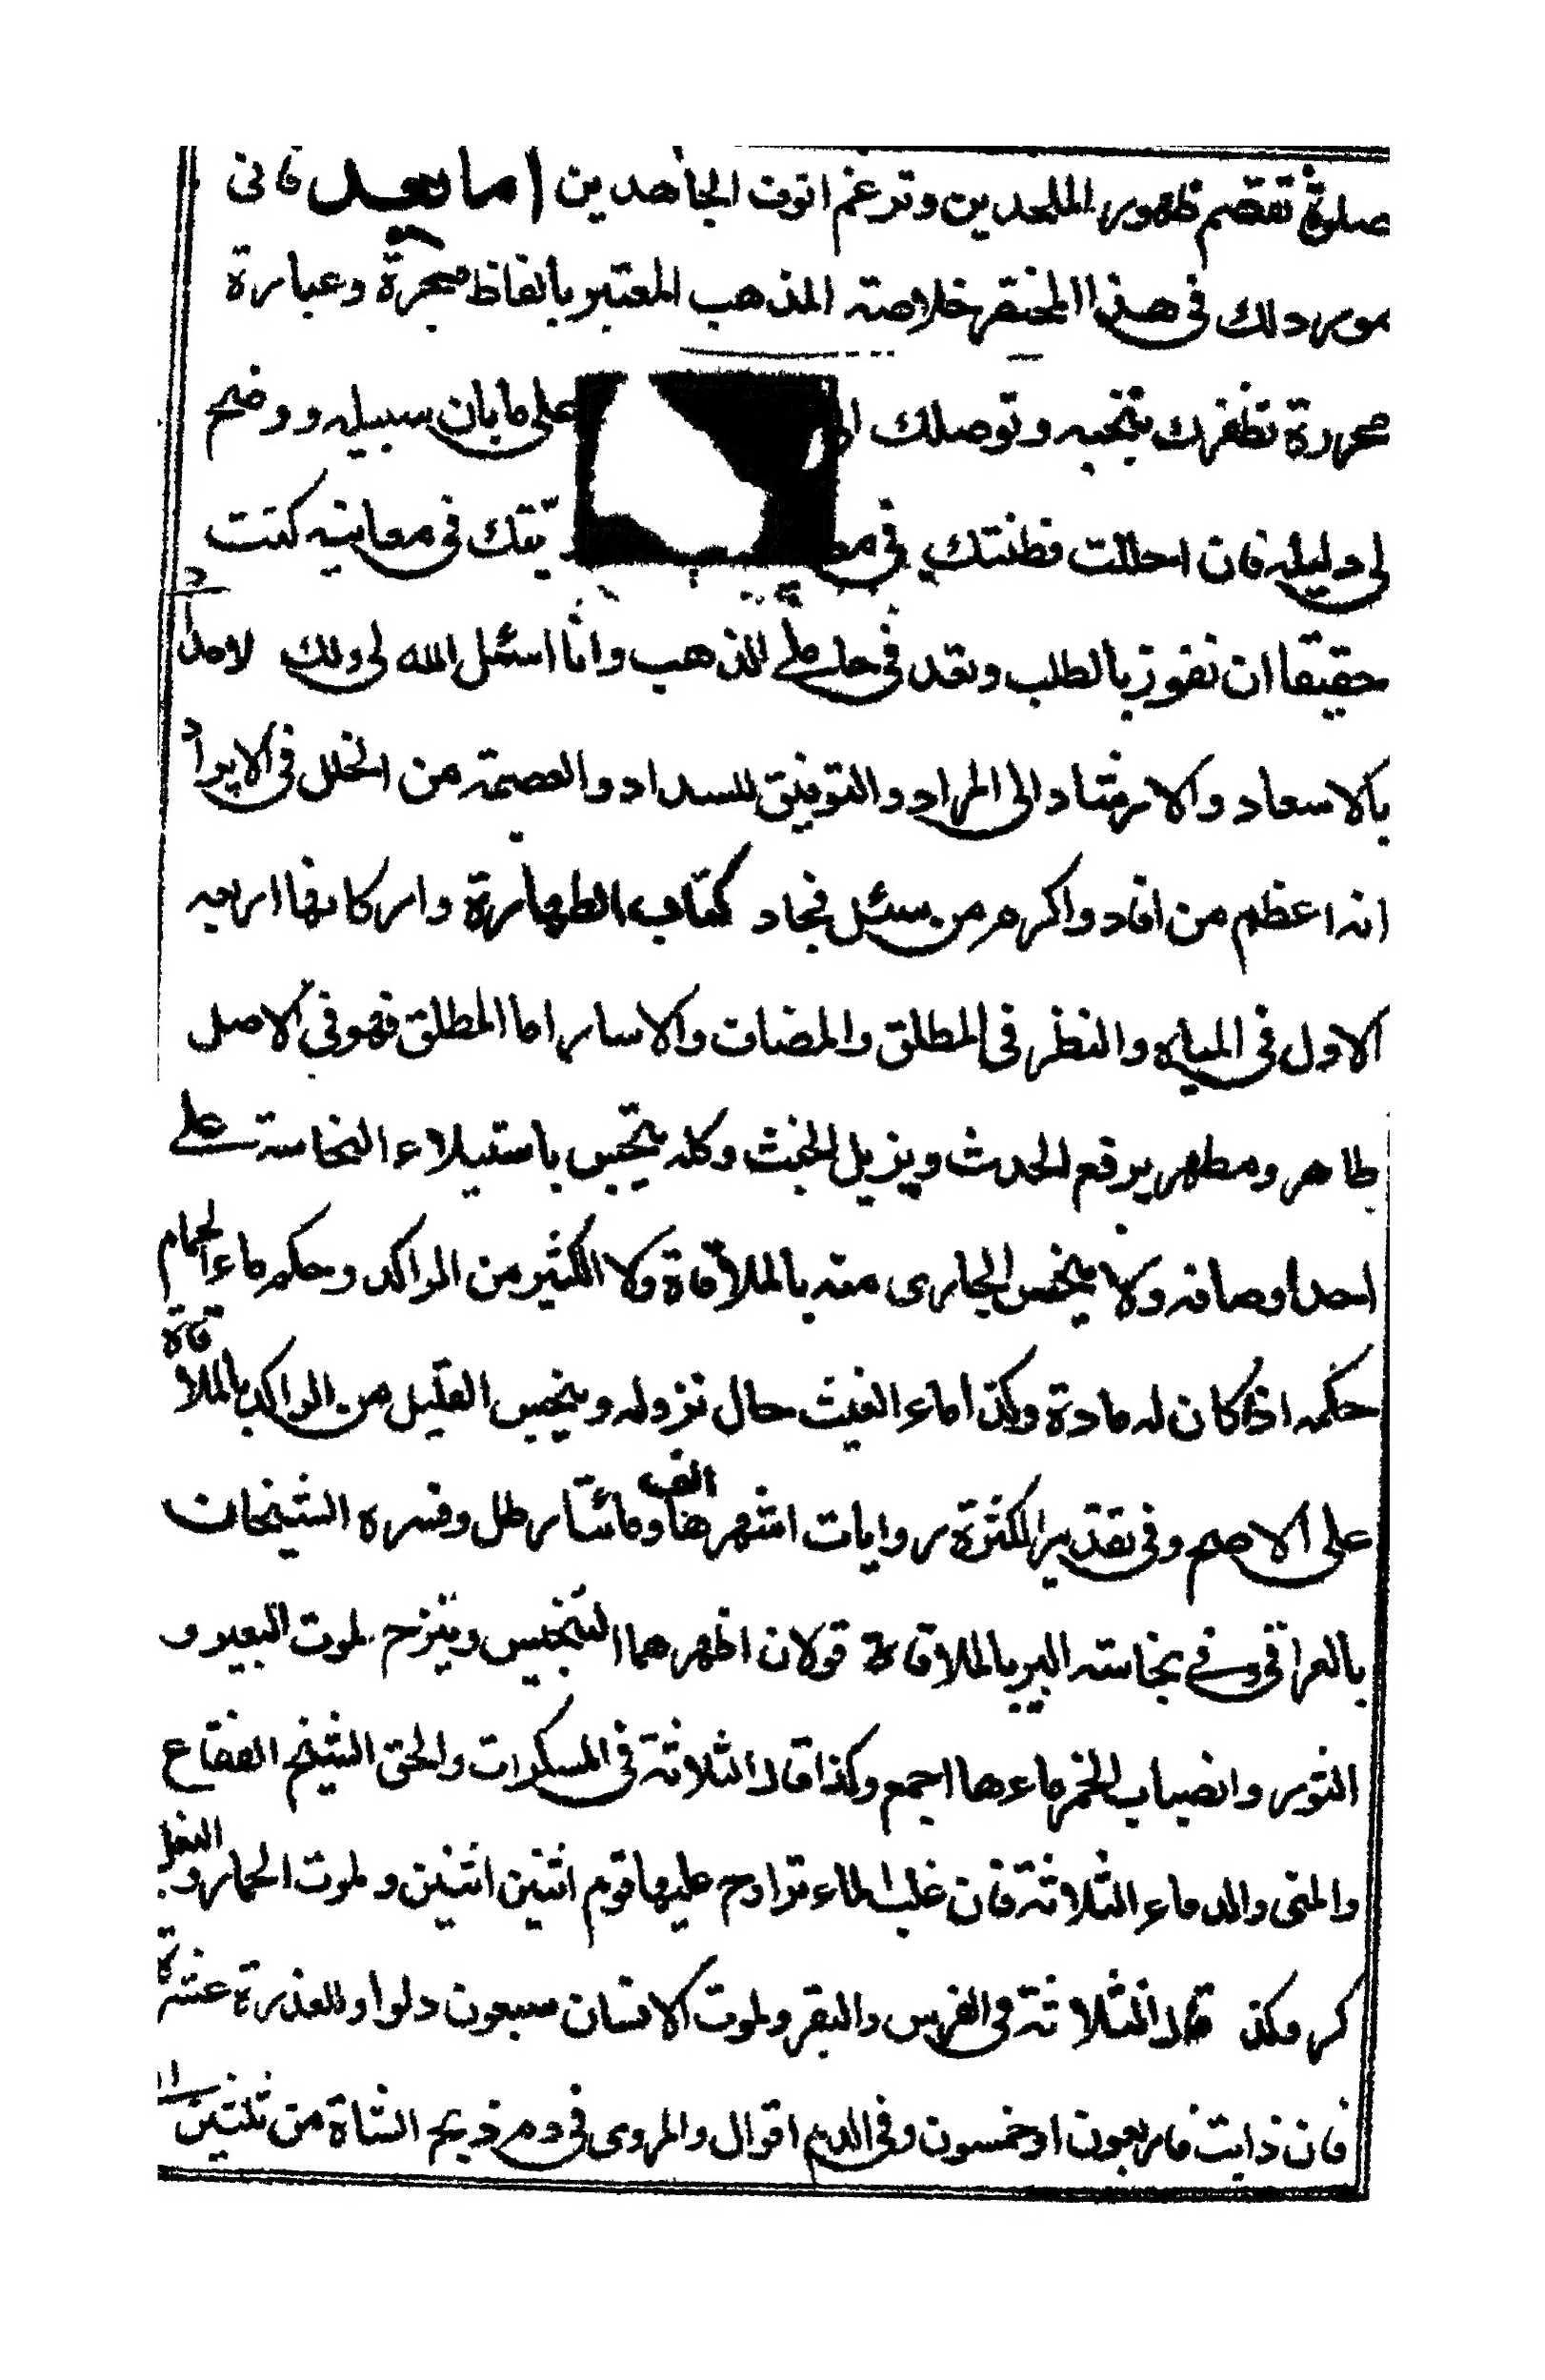 صلوة تقصم ظهور الملحدين وترغم انوف الجاحدين اما بعد فانى
مورد لك فى هذا المختصر خلاصة المذهب المعتبر بالفاظ محبرة وعبارة
محررة تظفرك بنخبه وتوصلك الى على ما بان سبيله ووضح
لى دليله فان احللت فطنتك فى يتك فى معانيه كنت
حقيقا ان تفوز بالطلب وتعد فى حاملى المذهب وانا اسئل الله لى ولك الامداد
بالاسعاد والارشاد الى المراد والتوفيق للسداد والعصمة من الخلل فى الايراد
انه اعظم من افاد واكرم من سئل فجاد كتاب الطهارة واركانها اربعه
الاول فى المياه والنظر فى المطلق والمضاف والاسار اما المطلق فهو فى الاصل
طاهر ومطهر يرفع الحدث ويزيل الخبث وكله ينجس باستيلاء النجاسة على
احد اوصافه ولا ينجس الجارى منه بالملاقاة ولا الكثير من الراكد وحكم ماء الحمام
حكمه اذا كان له مادة وكذا ماء الغيث حال نزوله وينجس القليل من الراكد بالملاقاة
على الاصح وفى تقدير الكثرة روايات اشهرها الف ومائتا رطل وفسره الشيخان
بالعراقى وفى نجاسة البير بالملاقاة قولان اظهرهما التنجيس وينزح لموت البعير و
الثور وانصباب الخمر ماءها اجمع وكذا قال الثلاثة فى المسكرات والحق الشيخ الفقاع
والمنى والدماء الثلاثة فان غلب الماء تراوح عليها قوم اثنين اثنين ولموت الحمار والبغل
كر وكذ قال الثلاثة فى الفرس والبقر ولموت الانسان سبعون دلوا وللعذرة عشرة
فان ذابت فاربعون او خمسون وفى الدم اقوال والمروى فى دم ذبح الشاة من ثلثين